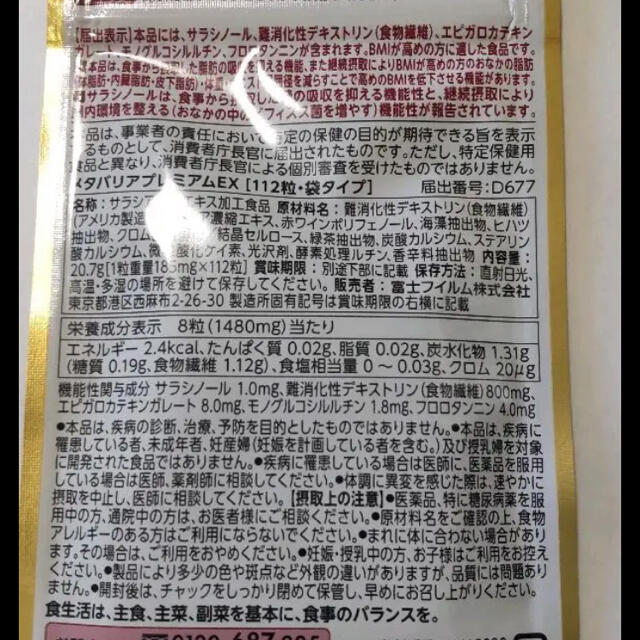 【届出表示】本品には、サラシノール、難消化性デキストリン(食物繊維)、エピガロカテキン
ガレート、モノグルコシルルチン、フロロタンニンが含まれます。BMIが高めの方に適した食品です。
本品は、食事から摂取した脂肪の吸収を抑える機能、また継続摂取によりBMIが高めの方のおなかの脂肪
体脂肪・内臓脂肪・皮下脂肪)・体重 径を減らすことで高めのBMIを低下させる機能があります。
サラシノールは、食事から摂取した の吸収を抑える機能性と、継続摂取により
内環境を整える(おなかの中の フィズス菌を増やす)機能性が報告されています。
本品は、事業者の責任において特定の保健の目的が期待できる旨を表示
るものとして、消費者庁長官に届出されたものです。ただし、特定保健用
食品と異なり、消費者庁長官による個別審査を受けたものではありません。
メタバリアプレミアムEX [112粒・袋タイプ] 届出番号:D677
名称:サラシア エキス加工食品 原材料名:難消化性デキストリン(食物繊維)
(アメリカ製造 ア濃縮エキス、赤ワインポリフェノール、海藻抽出物、ヒハツ
抽出物、クロム 結晶セルロース、緑茶抽出物、炭酸カルシウム、ステアリン
酸カルシウム、微 酸化ケイ素、光沢剤、酵素処理ルチン、香辛料抽出物 内容量:
20.7g[1粒重量185mg×112粒] 賞味期限:別途下部に記載 保存方法:直射日光、
高温・多湿の場所を避けて保存してください。 販売者:富士フイルム株式会社
東京都港区西麻布2-26-30 製造所固有記号は賞味期限の右横に記載
栄養成分表示 8粒(1480mg)当たり
エネルギー 2.4kcal、たんぱく質 0.02g、脂質 0.02g、炭水化物 1.31g
(糖質 0.19g、食物繊維 1.12g)、食塩相当量 0～0.03g、クロム 20μg
機能性関与成分 サラシノール 1.0mg、難消化性デキストリン(食物繊維)800mg、
エピガロカテキンガレート 8.0mg、モノグルコシルルチン 1.8mg、フロロタンニン 4.0mg
●本品は、疾病の診断、治療、予防を目的としたものではありません。●本品は、疾病に
罹患している者、未成年者、妊産婦(妊娠を計画している者を含む。)及び授乳婦を対象
に開発された食品ではありません。●疾病に罹患している場合は医師に、医薬品を服用
している場合は医師、薬剤師に相談してください。●体調に異変を感じた際は、速やかに
摂取を中止し、医師に相談してください。【摂取上の注意】●医薬品、特に糖尿病薬を服
用中の方、通院中の方は、お医者様にご相談ください。●原材料名をご確認の上、食物
アレルギーのある方はご利用にならないでください。●まれに体に合わない場合があり
ます。その場合は、ご利用をおやめください。●妊娠・授乳中の方、お子様はご利用をお控え
ください。●製品により多少の色や斑点など外観の違いがありますが、品質には問題あり
ません。●開封後は、チャックをしっかり閉めて保管し、早めにお召し上がりください。
食生活は、主食、主菜、副菜を基本に、食事のバランスを。